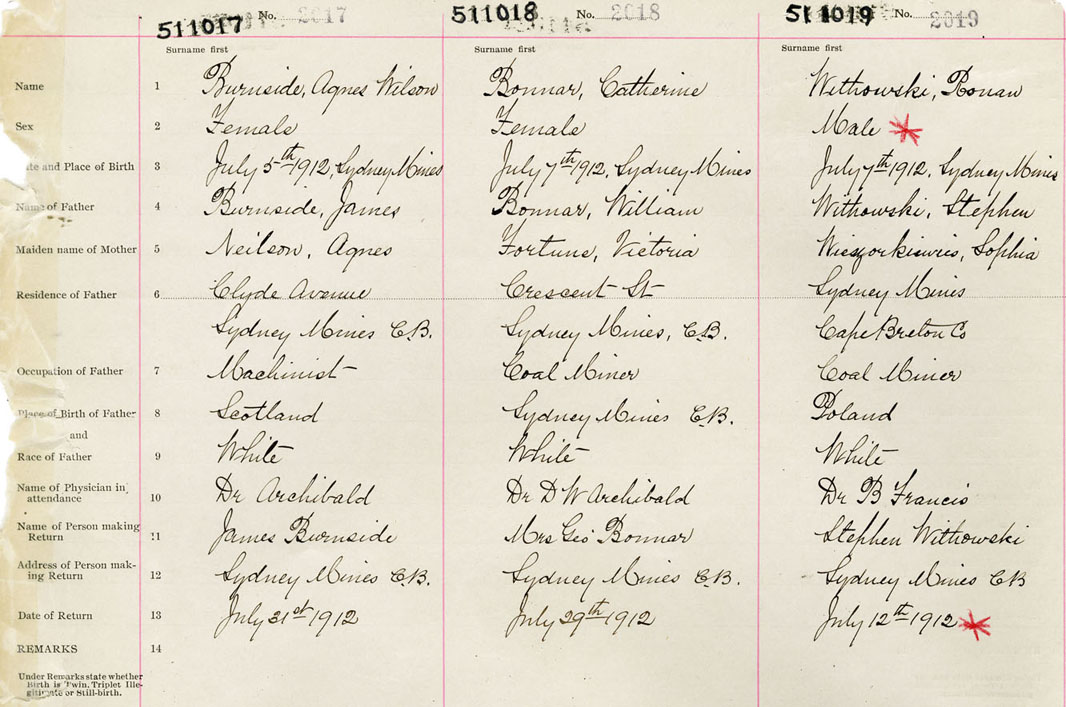 511017 No. 2017 511018 No. 2018 511019 No. 2019
Surname first Surname first Surname first
Name 1 Burnside, Agnes Wilson Bonnar, Catherine Withowski, Ronan
Sex 2 Female Female Male
Date and Place of Birth 3 July 5th 1912, Sydney Mines July 7th 1912, Sydney Mines July 7th 1912, Sydney Mines
Name of Father 4 Burnside, James Bonnar, William Withowski, Stephen
Maiden name of Mother 5 Neilson, Agnes Fortune, Victoria Sophia
Residence of Father 6 Clyde Avenue Crescent St Sydney Mines
Sydney Mines C.B. Sydney Mines, C.B. Cape Breton Co
Occupation of Father 7 Machinist Coal Miner Coal Miner
Place of Birth of Father 8 Scotland Sydney Mines C.B. Poland
and
Race of Father 9 White White White
Name of Physician in
attendance 10 Dr Archibald Dr D W Archibald Dr B Francis
Name of Person making
Return 11 James Burnside Mrs Geo Bonnar Stephen Withowski
Address of Person mak-
ing Return 12 Sydney Mines C.B. Sydney Mines C.B. Sydney Mines CB
Date of Return 13 July 31st 1912 July 29th 1912 July 12th 1912
REMARKS 14
Under Remarks state whether
Birth is Twin, Triplet Ille-
gitimate or Still-birth.